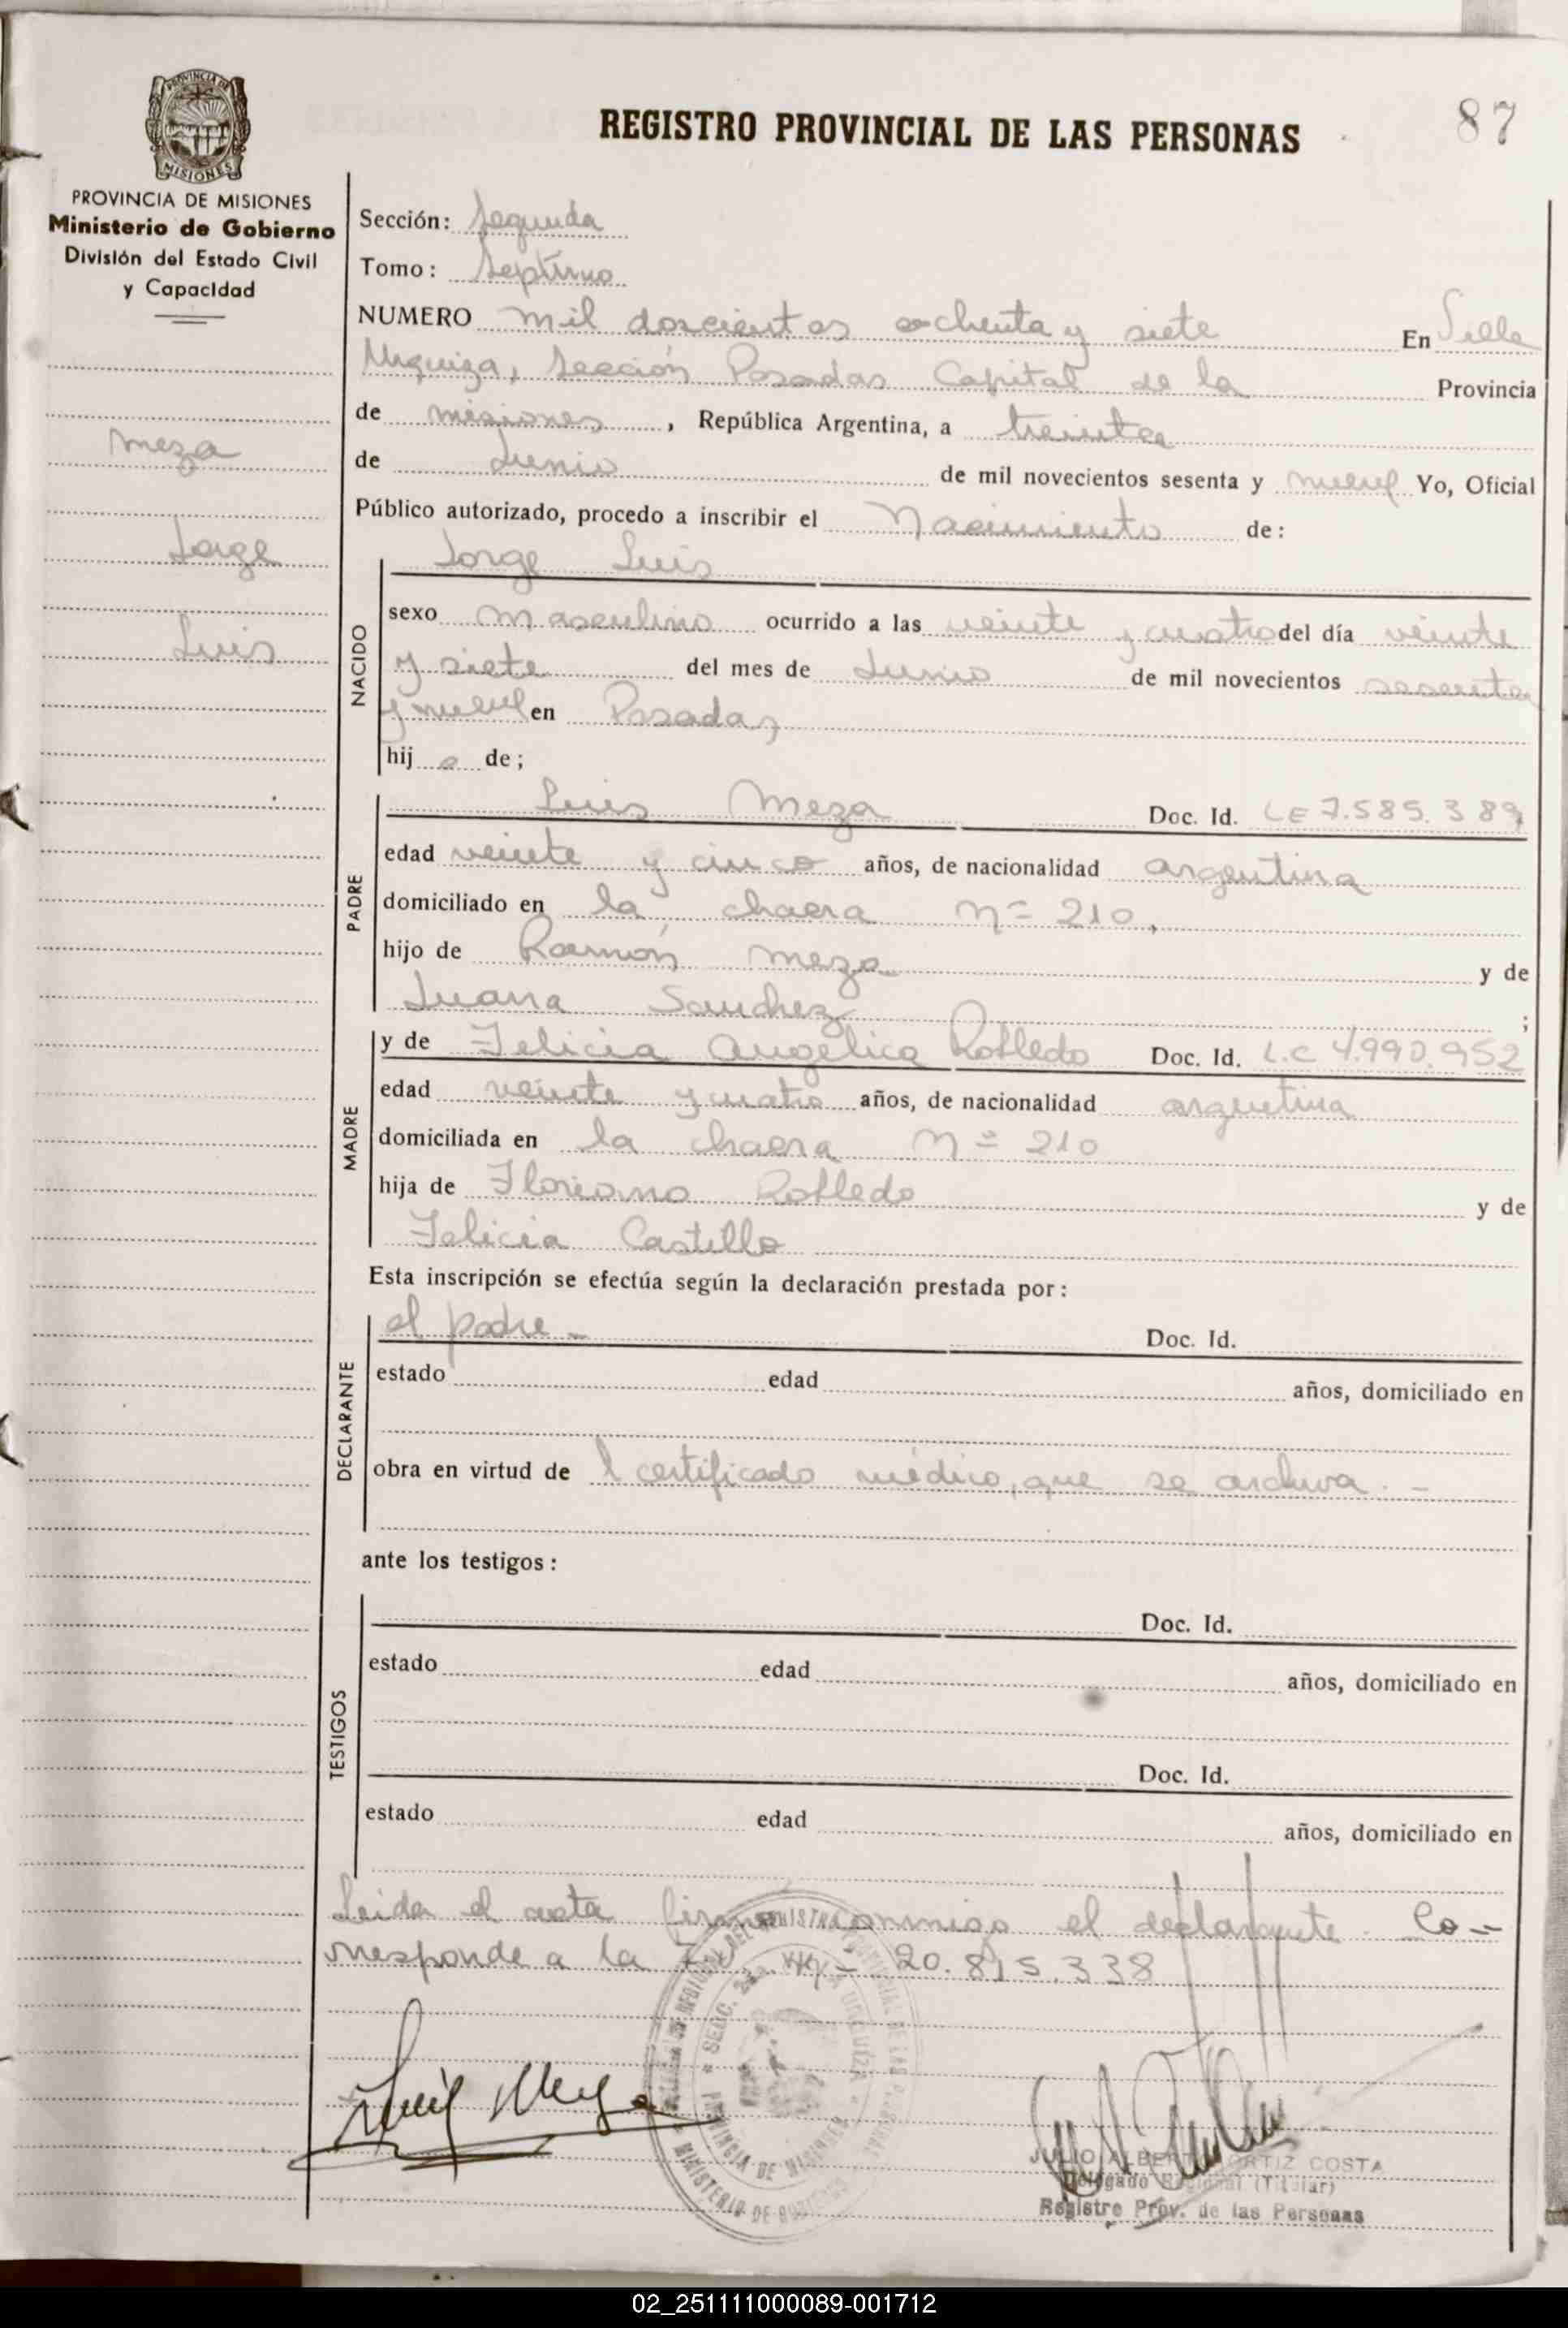 REGISTRO PROVINCIAL DE LAS PERSONAS
87
PROVINCIA DE MISIONES
Ministerio de Gobierno
División del Estado Civil
y Capacidad
Meza
Jorge
Luis
Sección: Segunda
Tomo: Septimo
NUMERO mil doscientos ochenta y siete En Villa
Urquiza, Sección Posadas Capital de la Provincia
de misiones, República Argentina, a treinta
de Junio de mil novecientos sesenta y nueve Yo, Oficial
Público autorizado, procedo a inscribir el Nacimiento de:
Jorge Luis
NACIDO
sexo masculino ocurrido a las veinte y cuatro del día veinte
y siete del mes de Junio de mil novecientos sesenta
y nueve en Posadas
hij o de;
PADRE
Luis Meza Doc. Id. LE 7.585.389,
edad veinte y cinco años, de nacionalidad argentina
domiciliado en la chacra n= 210,
hijo de Ramón Meza y de
Juana Sanchez ;
MADRE
y de Felicia Angélica Robledo Doc. Id. L.C 4.990.952
edad veinte y cuatro años, de nacionalidad argentina
domiciliada en la chacra n= 210
hija de Floriano Robledo y de
Felicia Castillo
Esta inscripción se efectúa según la declaración prestada por:
DECLARANTE
el padre - Doc. Id.
estado edad años, domiciliado en
obra en virtud de l certificado médico, que se archiva. -
ante los testigos:
TESTIGOS
Doc. Id.
estado edad años, domiciliado en
Doc. Id.
estado edad años, domiciliado en
Leida el acta firma conmigo el declarante. Co-
rresponde a la 20.815.338
Luis Meza
JULIO ALBERTO ORTIZ COSTA
Delegado Regional (Titular)
Registro Prov. de las Personas
02_251111000089-001712